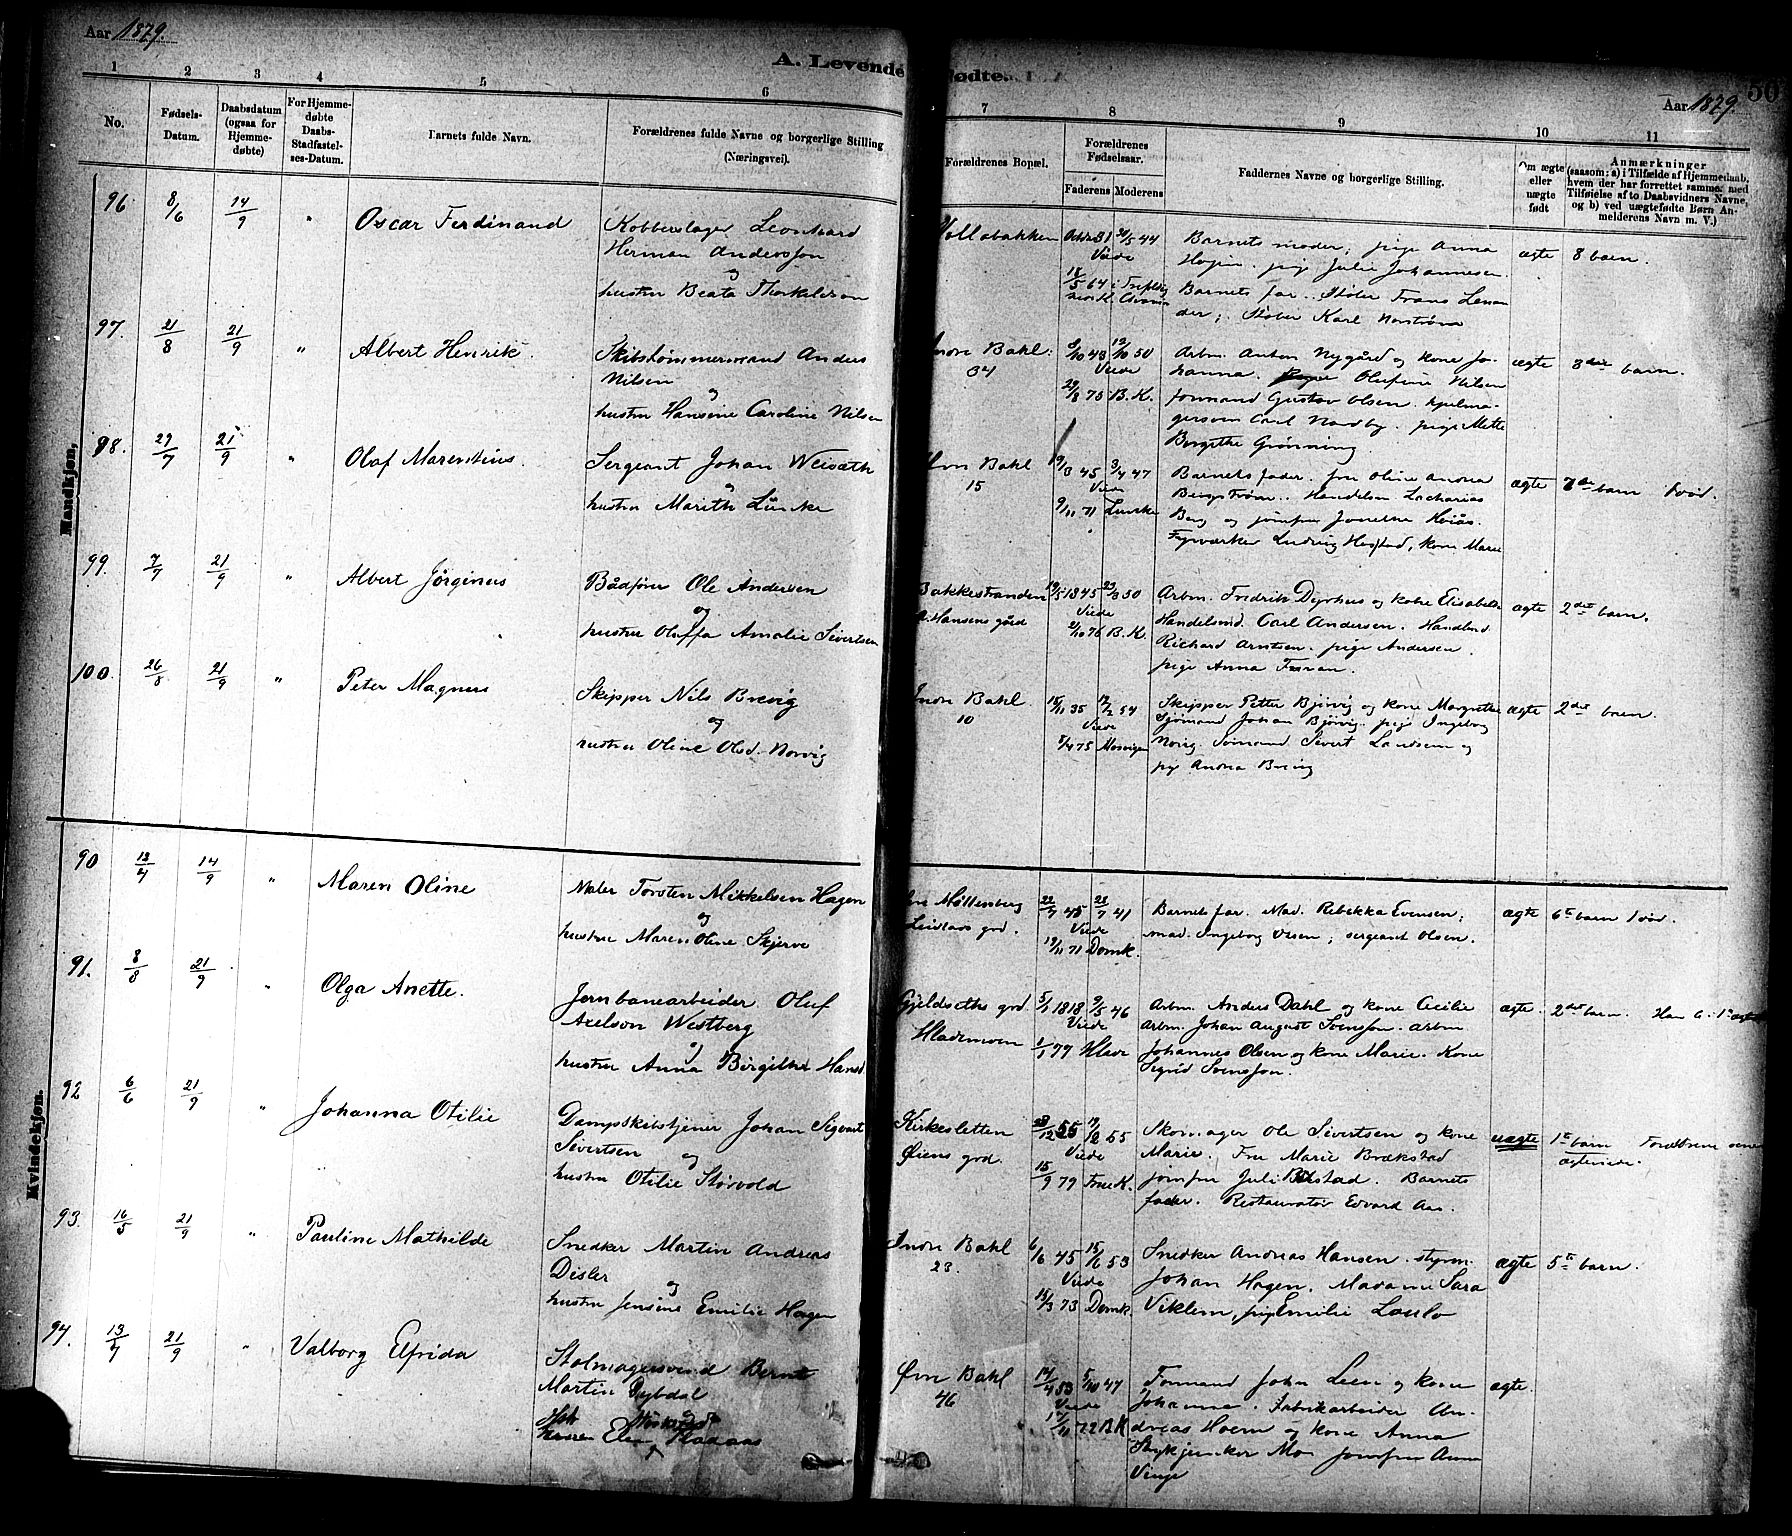 Aar 1879.
A. Levende Fødte.
50
Aar 1879.
1 2 3 4 5 6 7 8 9 10 11
No.
Fødsels-Datum.
Daabsdatum (ogsaa for Hjemme-døbte)
For Hjemme-døbte Daabs-Stadfæstel-ses-Datum.
Barnets fulde Navn.
Forældrenes fulde Navne og borgerlige Stilling
(Næringsvei).
Forældrenes Bopæl.
Forældrenes Fødselsaar.
Faderens Moderens
Faddernes Navne og borgerlige Stilling.
Om ægte eller uægte født
Anmærkninger
(saasom: a) i Tilfælde af Hjemmedaab, hvem der har forrettet samme, med Tilføielse af to Daabsvidners Navne, og b) ved uægtefødte Børn Anmelderens Navn m. V.)
Mandkjøn.
96 8/6 14/9 "
Oscar Ferdinand
Kobberslager Leonhard
Herman Andersson
og
hustru Beata Thorkildson
31 44
Viede
Barnets moder; pige Anna
pige Julie Johannesen
Barnets far. Støber Frans Lenan
der; Støber Karl Norstrøm
ægte 8 barn.
97. 21/8 21/9 "
Albert Henrik.
Skibstømmermand Anders
Nilsen
og
hustru Hansine Caroline Nilsen
Indre Bakl.
34
48 50
Viede
75 B.K.
Arbm. Anton Nygård og kone Jo-
hanna. Olufine Nilsen
formand Gustav Olsen. hjulma-
gersven Carl Nordby. pige Mette
Bergithe Grønning
ægte 3die barn.
98. 29/7 21/9 "
Olaf Marentius.
Sergeant Johan Weisæth
og
hustru Marith Lünke
Øvre Bakl
15
45 3/4 47
Viede
9/11 71
Barnets fader. fru Oline Andrea
Bergstrøm. Handelsm Zacharias
Berg og jomfru
Fyrværker Ludvig Hegstad, kone Marie
ægte 7de barn 1 død.
99. 7/7 21/9 "
Albert Jørginus
Bådfører Ole Andersen
og
hustru Oluffa Amalie Sivertsen
Bakkestranden
Hansens gård
19/5 1845 50
Viede
2/10 76 B.K.
Arbm. Fredrik Dyrhus og kone Elisabeth
Handelsmd. Carl Andersen. Handlmd
Richard Arntsen. pige Andersen.
pige Anna
ægte 2det barn.
100. 26/8 21/9 "
Peter Magnus
Skipper Nils Brevig
og
hustru Oline Olsd. Norvig
Indre Bakl
10
15/11 35 17/2 54
Viede
5/4 75
Skipper Petter Bjørvig og kone Margrethe
Sjømand Johan Bjørvig. pige Ingebog
Norvig. Sømand Sivert
pig Andrea Brevig
ægte 2det barn.
Kvindekjøn.
90 13/4 14/9 "
Maren Oline
Maler Torsten Mikkelsen Hagen
og
hustru Maren Oline Skjerve
Møllenberg
grd.
22/7 45 22/7 41
Viede
19/11 71 Domk.
Barnets far. Mad. Rebekka Evensen;
mad. Ingeborg Olsen; sergeant Olsen.
ægte 6te barn 1 død.
91. 8/8 21/9 "
Olga Anette.
Jernbanearbeider Oluf
Axelson Westberg
og
hustru Anna Birgithe Hansd.
Gjeldseths grd.
Hlademoen
5/1 1818 9/5 46
Viede
1/1 79 Hlade
Arbm. Anders Dahl og kone Cecilie
Arbm. Johan August Svensson. arbm
Johannes Olsen og kone Marie. Kone
Sigrid Svensson.
ægte. 2det barn.
92 6/6 21/9 "
Johanna Otilie
Dampskibstjener Johan Sigvart
Sivertsen
og
hustru Otilie Størvold
Kirkesletten
Øiens grd.
12 55 2 55
Viede
15/9 79 Frue K.
Skomager Ole Sivertsen og kone
Marie. Fru Marie Brækstad
jomfru Juli Bakstad. Barnets
fader. Restauratør Edvard Aas.
uægte 1te barn Forældrene senere
ægteviede.
93. 16/5 21/9 "
Pauline Mathilde
Snedker Martin Andreas
Disler
og
hustru Jensine Emilie Hagen
Indre Bakl
23.
6/6 45 15/6 53
Viede
15/3 73 Domk.
Snedker Andreas Hansen. styrm.
Johan Hagen. Madame Sara
Viklem, pige Emilie
ægte 5te barn.
94. 13/7 21/9 "
Valborg Elfrida
Stolmagersvend Bernt
Martin Dybdal
og
hustru
Øvre Bakl
46
14/4 53 5/10 47
Viede
17/11 72 B.K
Formand John Leen og kone
Johanna. Fabrikarbeider An-
dreas Hoem og kone Anna
Stykjunker Mo Jomfru Anna
Vinje
ægte.